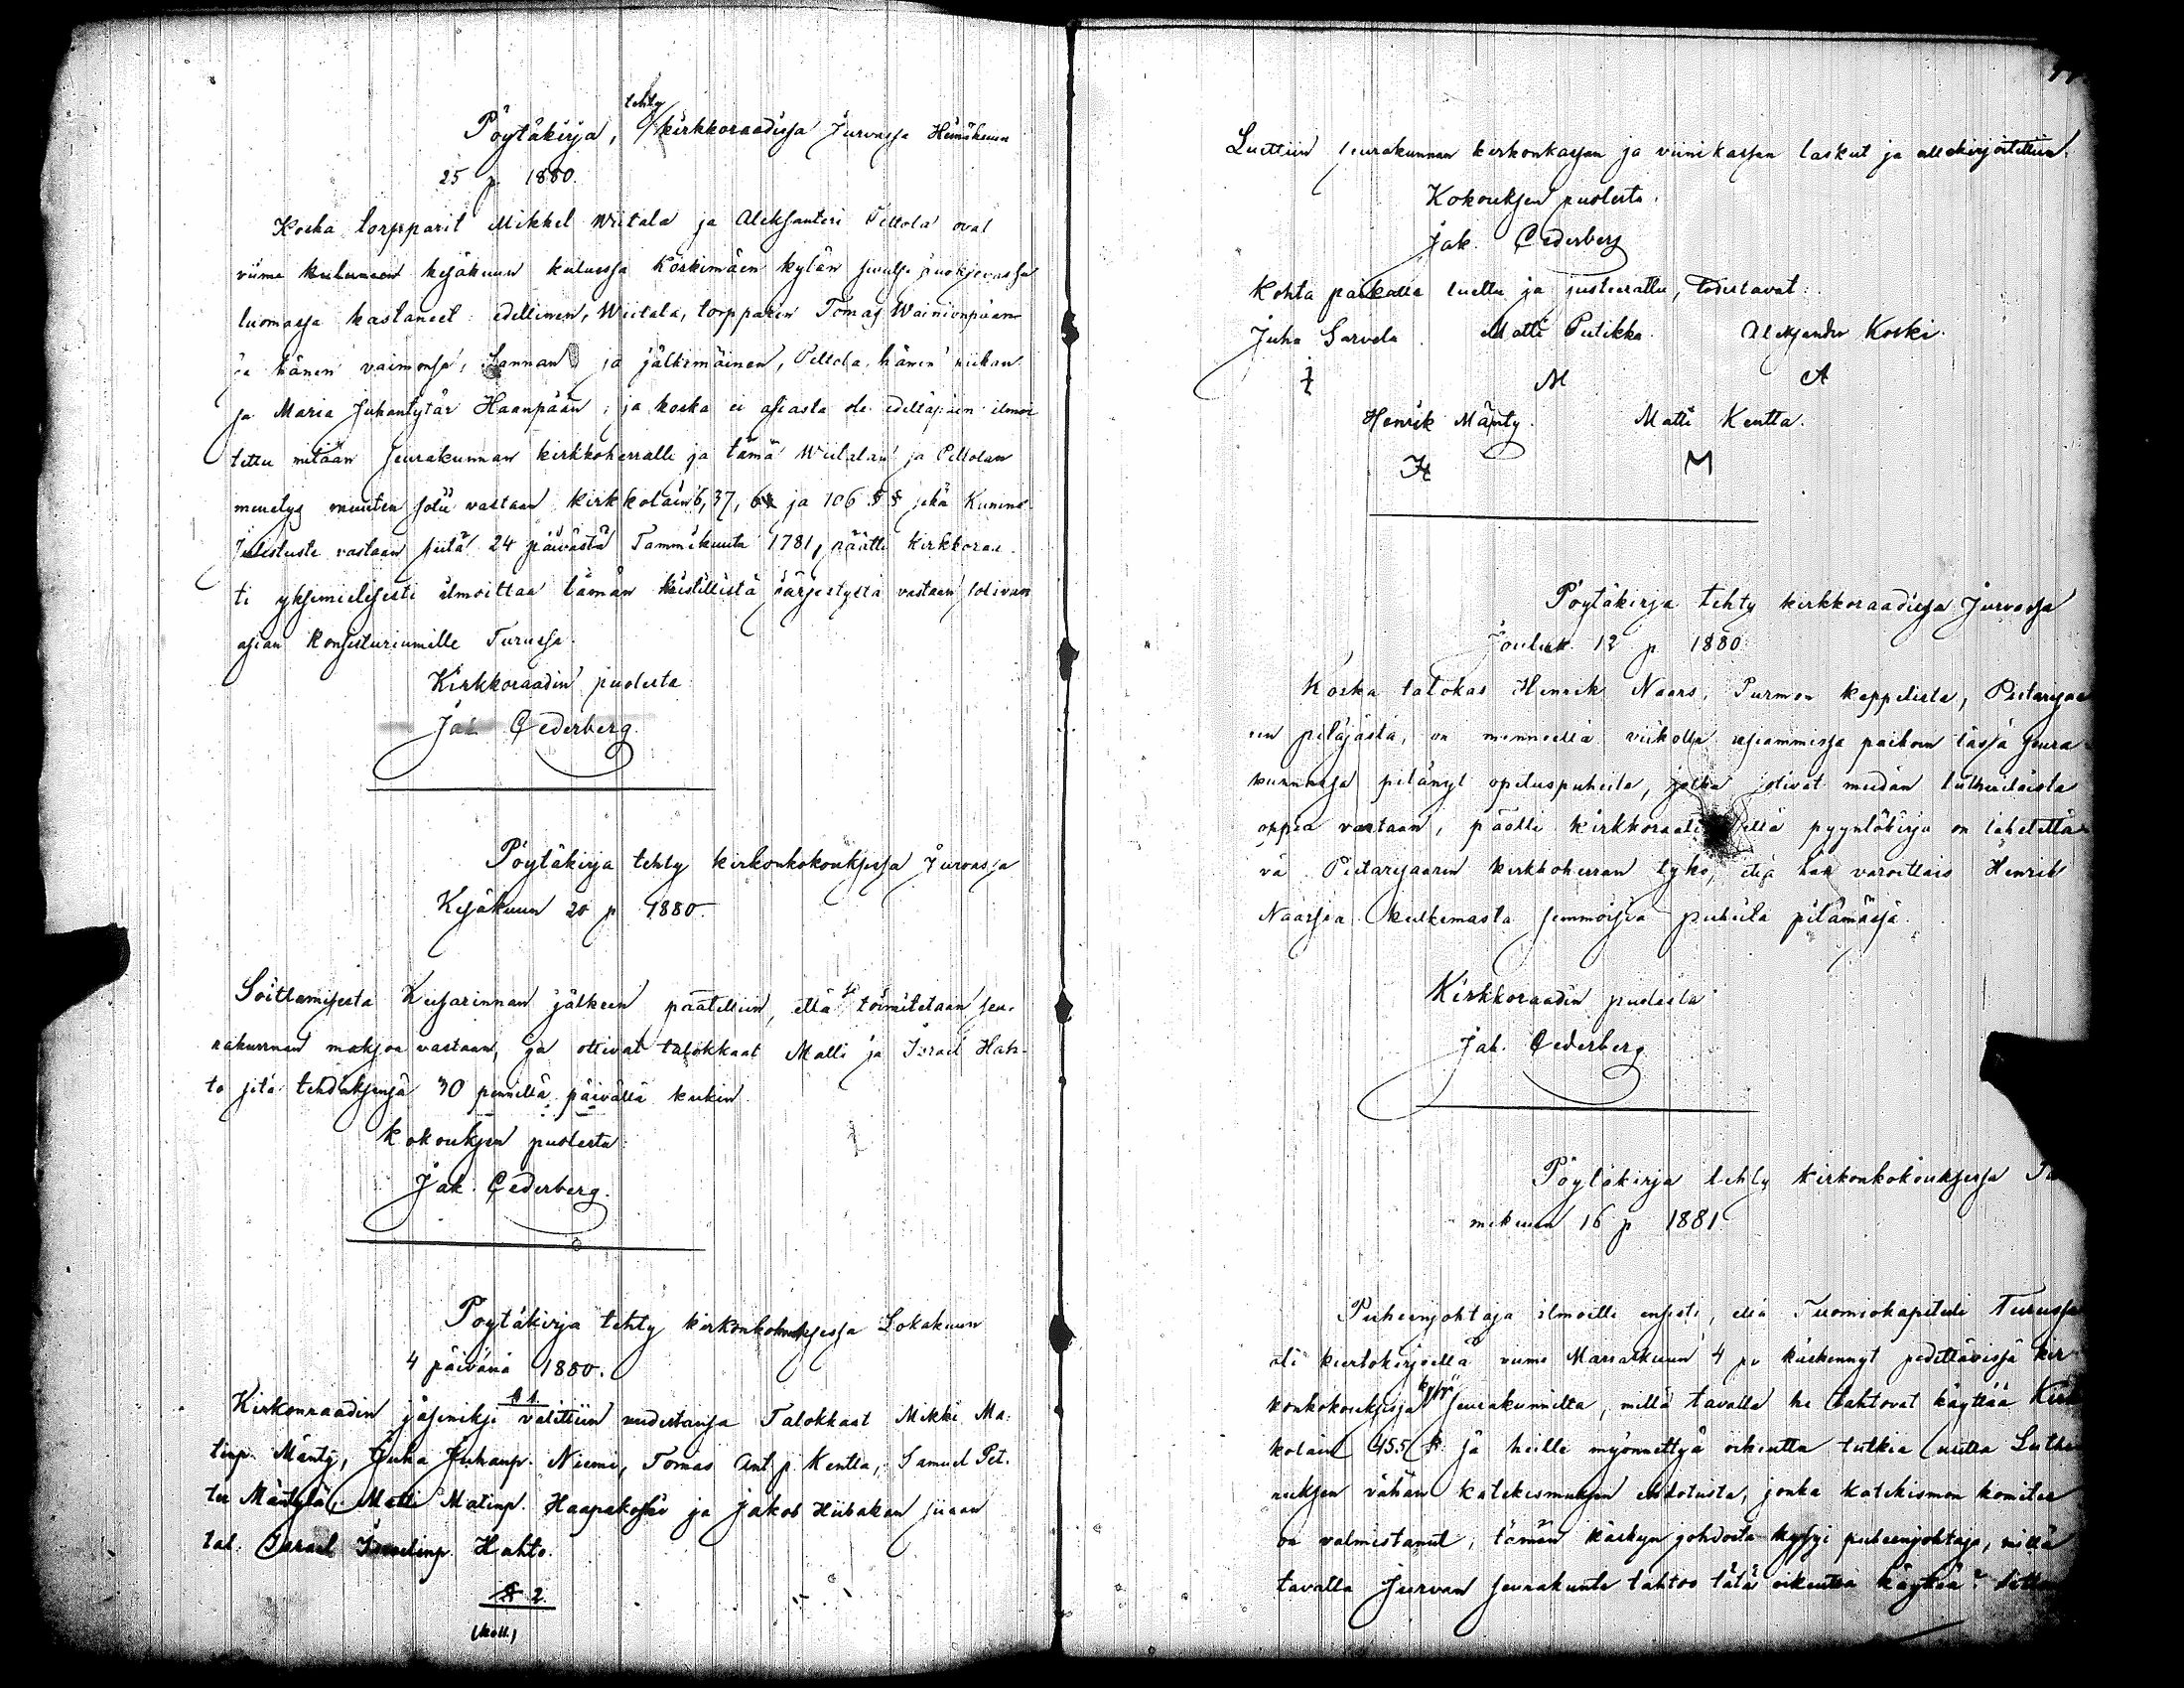 tehty
Pöytäkirja, kirkkoraadissa Jurvassa Heinäkuun
25 p 1880.
Koska torpparit Mikkel Wiitala ja Aleksanteri Peltola ovat
viime kesäkuun kuluessa Koskimäen kylän
luomassa kastaneet edellinen, Wiitala, torpparin Tomas Wainionpään
ja hänen vaimonsa, Sannan ja jälkimäinen, Peltola, hänen
ja Maria Juhantytär Haanpään; ja koska ei asiasta ole edeltäpäin ilmoi
tettu mitään seurakunnan kirkkoherralle ja tämä Wiitalan ja Peltolan
menetys muuten sotii vastaan kirkkolain 6, 37, ja 106 § § sekä Kunink.
Julistusta vastaan siitä 24 päivästä Tammikuuta 1781, päätti Kirkkoraa-
ti yksimielisesti ilmoittaa tämän kristillistä järjestystä vastaan sotivan
asian Konsistoriumille Turussa.
Kirkkoraadin puolesta
Jak. Cederberg.
Pöytäkirja tehty kirkonkokouksessa Jurvassa
Kesäkuun 20 p 1880.
Soittamisesta Keisarinnan jälkeen päätettiin, että se toimitetaan seu-
rakunnan maksoa vastaan, ja ottivat talokkaat Matti ja Israel Hah-
to sitä tehdäksensä 30 pennillä päivältä kukin.
Kokouksen puolesta:
Jak. Cederberg.
Pöytäkirja tehty kirkonkokouksessa Lokakuun
4 päivänä 1880.
§ 1.
Kirkonraadin jäseniksi valittiin uudestansa Talokkaat Mikki Ma-
tinp. Mänty, Juha Juhanp. Niemi, Tomas Ant. p. Kentta, Samuel Pet.
Mäntylä, Matti Matinp. Haapakoski ja Jakob Hiibakan sijaan
tal. Israel Israelinp. Hahto.
§ 2.
Luettiin seurakunnan kirkonkassan ja viinikassan laskut ja allekirjoitettiin.
Kokouksen puolesta.
Jak. Cederberg
Kohta paikalla luettu ja justeerattu, todistavat:
Juha Sarvela. Matti Peitikka. Aleksander Koski.
M A
Henrik Mänty. Matti Kentta.
H M
Pöytäkirja tehty kirkkoraadissa Jurvassa
Jouluk. 12 p 1880.
Koska talokas Henrik Naars, Purmon kappelista, Pietarsaa
ren pitäjästä, on menneellä viikolla useammissa paikoin tässä seura-
kunnassa pitänyt opetuspuheita, jotka sotivat meidän lutherilaista
oppia vastaan, päätti kirkkoraati että pyyntökirja on lähetettä-
vä Pietarsaaren kirkkoherran tykö, että hän varoittais Henrik
Naarsia kulkemasta semmoisia puheita pitämässä.
Kirkkoraadin puolesta
Jak. Cederberg
Pöytäkirja tehty kirkonkokouksessa
mikuun 16 p 1881
Puheenjohtaja ilmoitti ensisti, että Tuomiokapituli Turussa
oli kiertokirjeellä viime Marraskuun 4 pv käskennyt pidettävissä kir-
konkokouksissa kysyä seurakunnilta, millä tavalla he tahtovat käyttää Kirk
kolain 455 §. ja heille myönnettyä oikeutta tutkia uutta Luthe
ruksen vähän katekismuksen ehdotusta, jonka katekismon komitea
on valmistanut; tämän käskyn johdosta kysyi puheenjohtaja, millä
tavalla Jurvan seurakunta tahtoo tätä oikeutta käyttää?